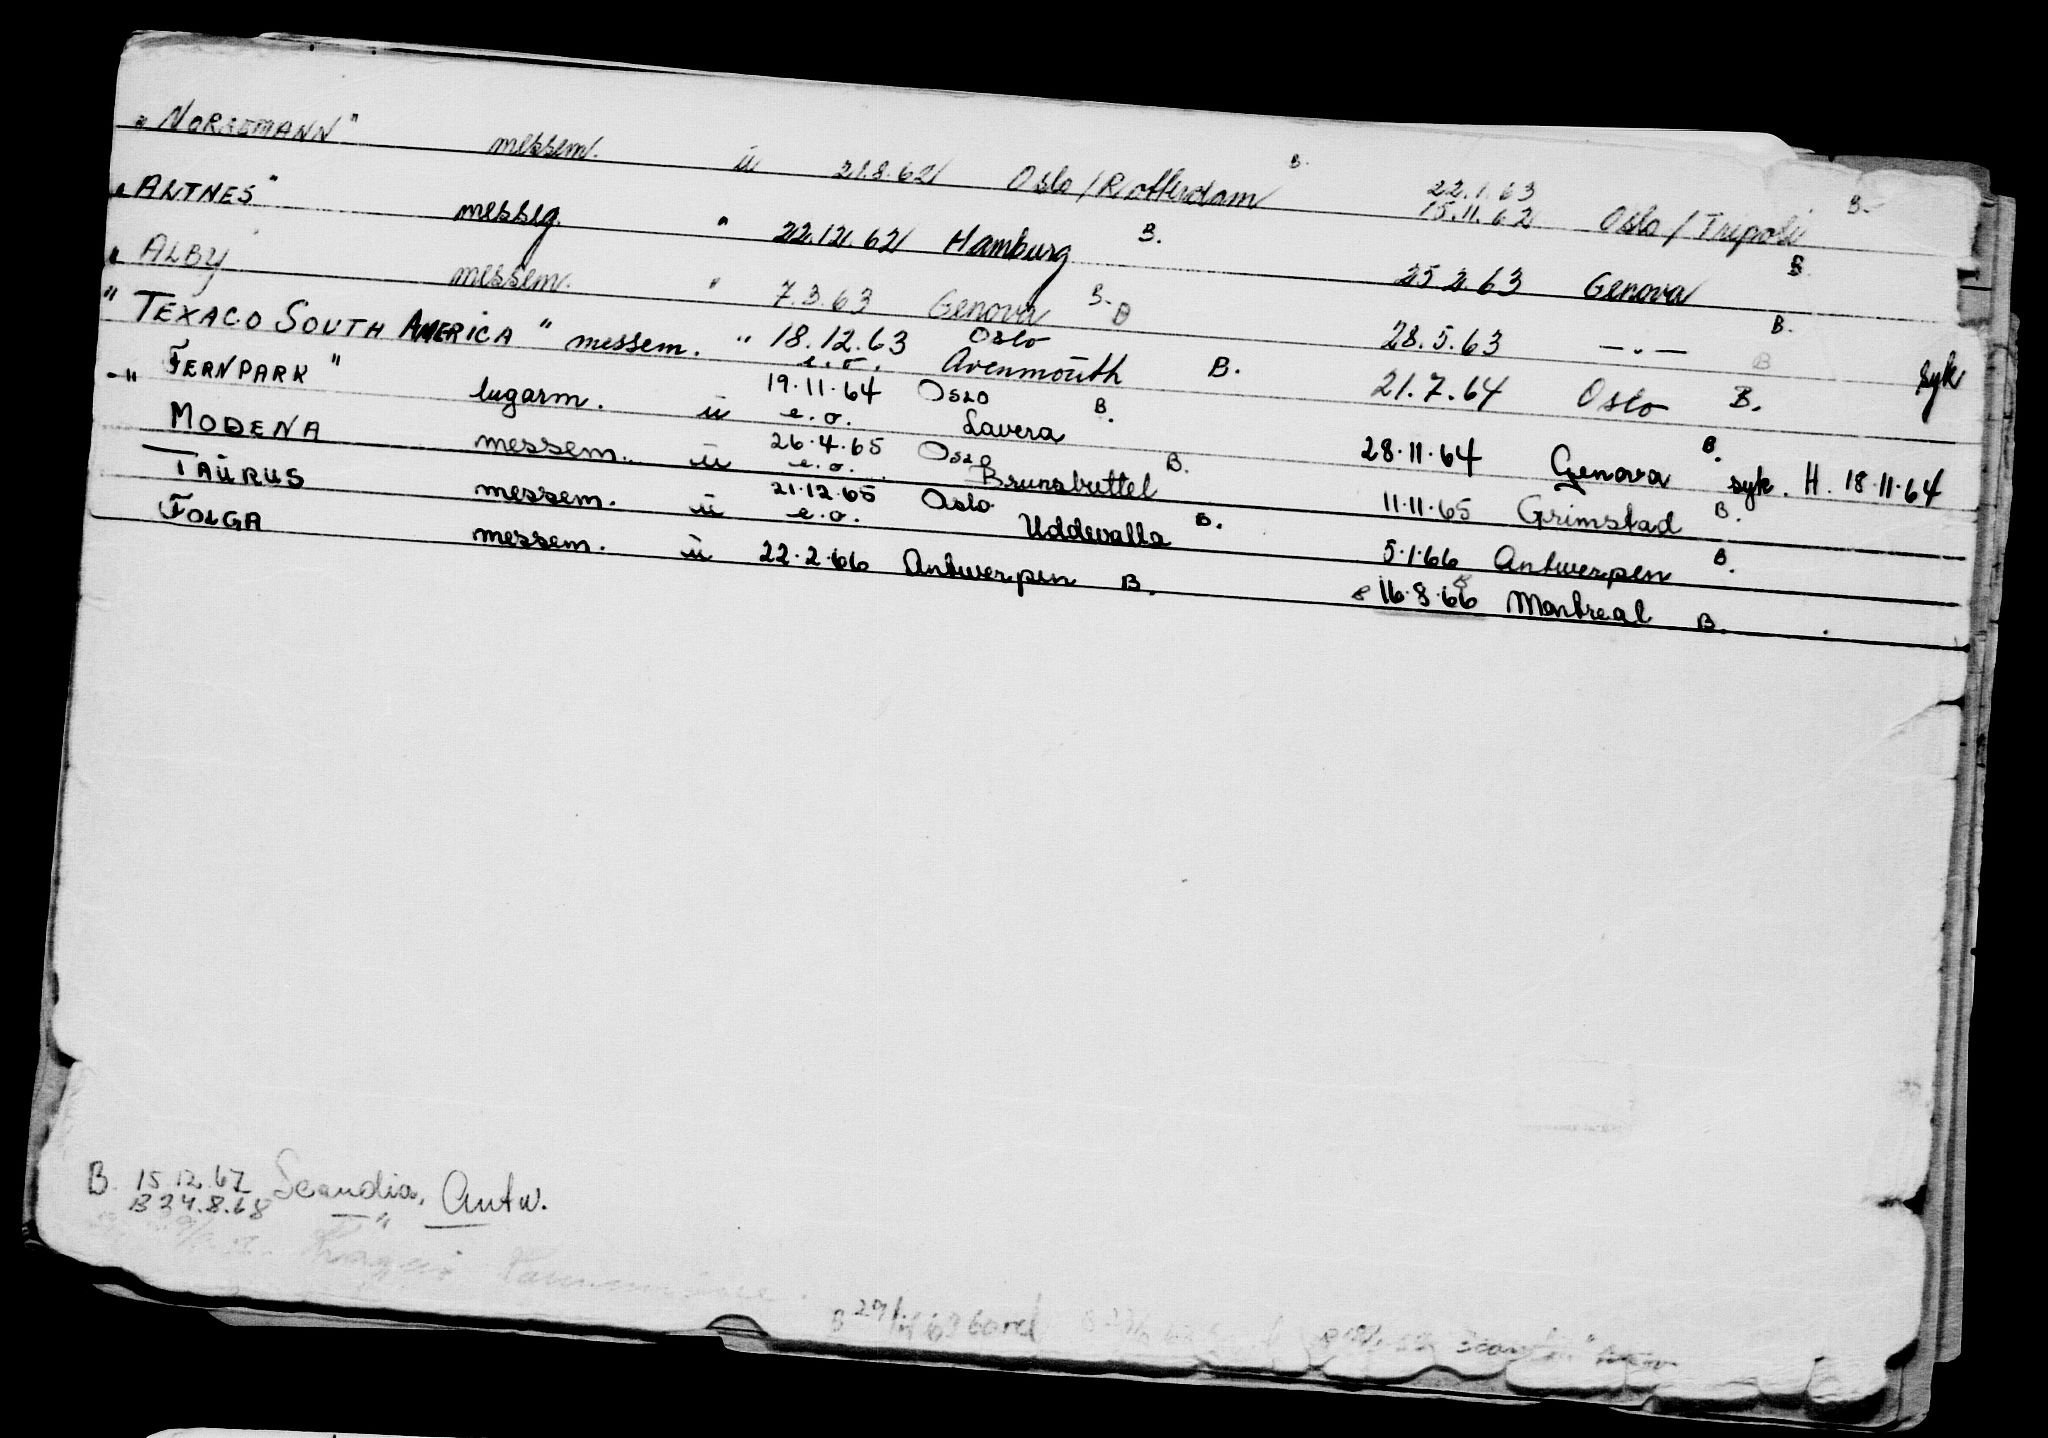 „NORSEMANN" messem. ü 21.8.62 Oslo/Rotterdam B. 22.1.63 15.11.62 Oslo/Tripoli B.
„ALTNES" messeg. " 22.12.62 Hamburg B. 25.2.63 Genova B.
„ALBY messem. " 7.3.63 Genova B. B 28.5.63 —„— B.
"TEXACO SOUTH AMERICA" messem. " 18.12.63 Oslo e.o. Avenmouth B. 21.7.64 Oslo B. syk
-" FERNPARK" lugarm. ü 19.11.64 Oslo e.o. Lavera B. 28.11.64 Genova B. syk. H. 18.11.64
MODENA messem. ü 26.4.65 Oslo e.o. Brunsbuttel B. 11.11.65 Grimstad B.
TAURUS messem. ü 21.12.65 Oslo e.o. Uddevalla B. 5.1.66 Antwerpen B.
FOLGA messem. ü 22.2.66 Antwerpen B. 16.8.66 Montreal B.
B. 15.12.67 Scandia, Antw.
B 24.8.68 —"—
B 29/